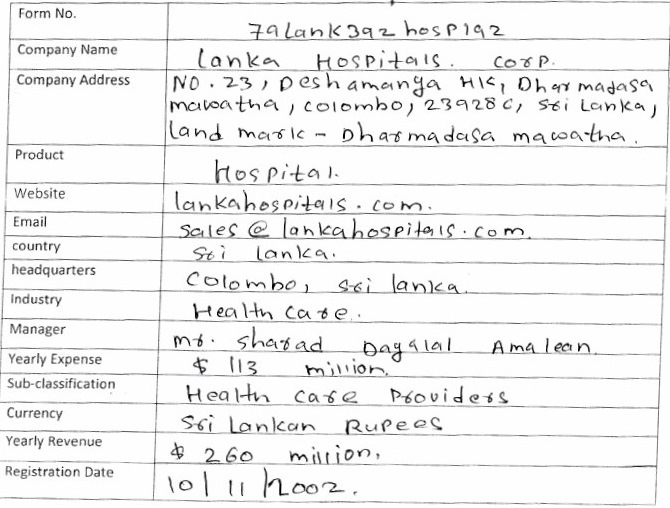 Form No. 79Lank392hosp192
Company Name Lanka Hospitals. Corp.
Company Address No. 23, Deshamanya HK, Dharmadasa
mawatha, colombo, 23928C, Sri Lanka,
Land mark - Dharmadasa mawatha.
Product Hospital.
Website lankahospitals.com.
Email sales@lankahospitals.com.
country Sri lanka.
headquarters Colombo, Sri lanka.
Industry Health care.
Manager mr. sharad Dagalal Amalean
Yearly Expense $ 113 million.
Sub-classification Health care Providers
Currency Sri Lankan Rupees
Yearly Revenue $ 260 million,
Registration Date 10/11/2002.